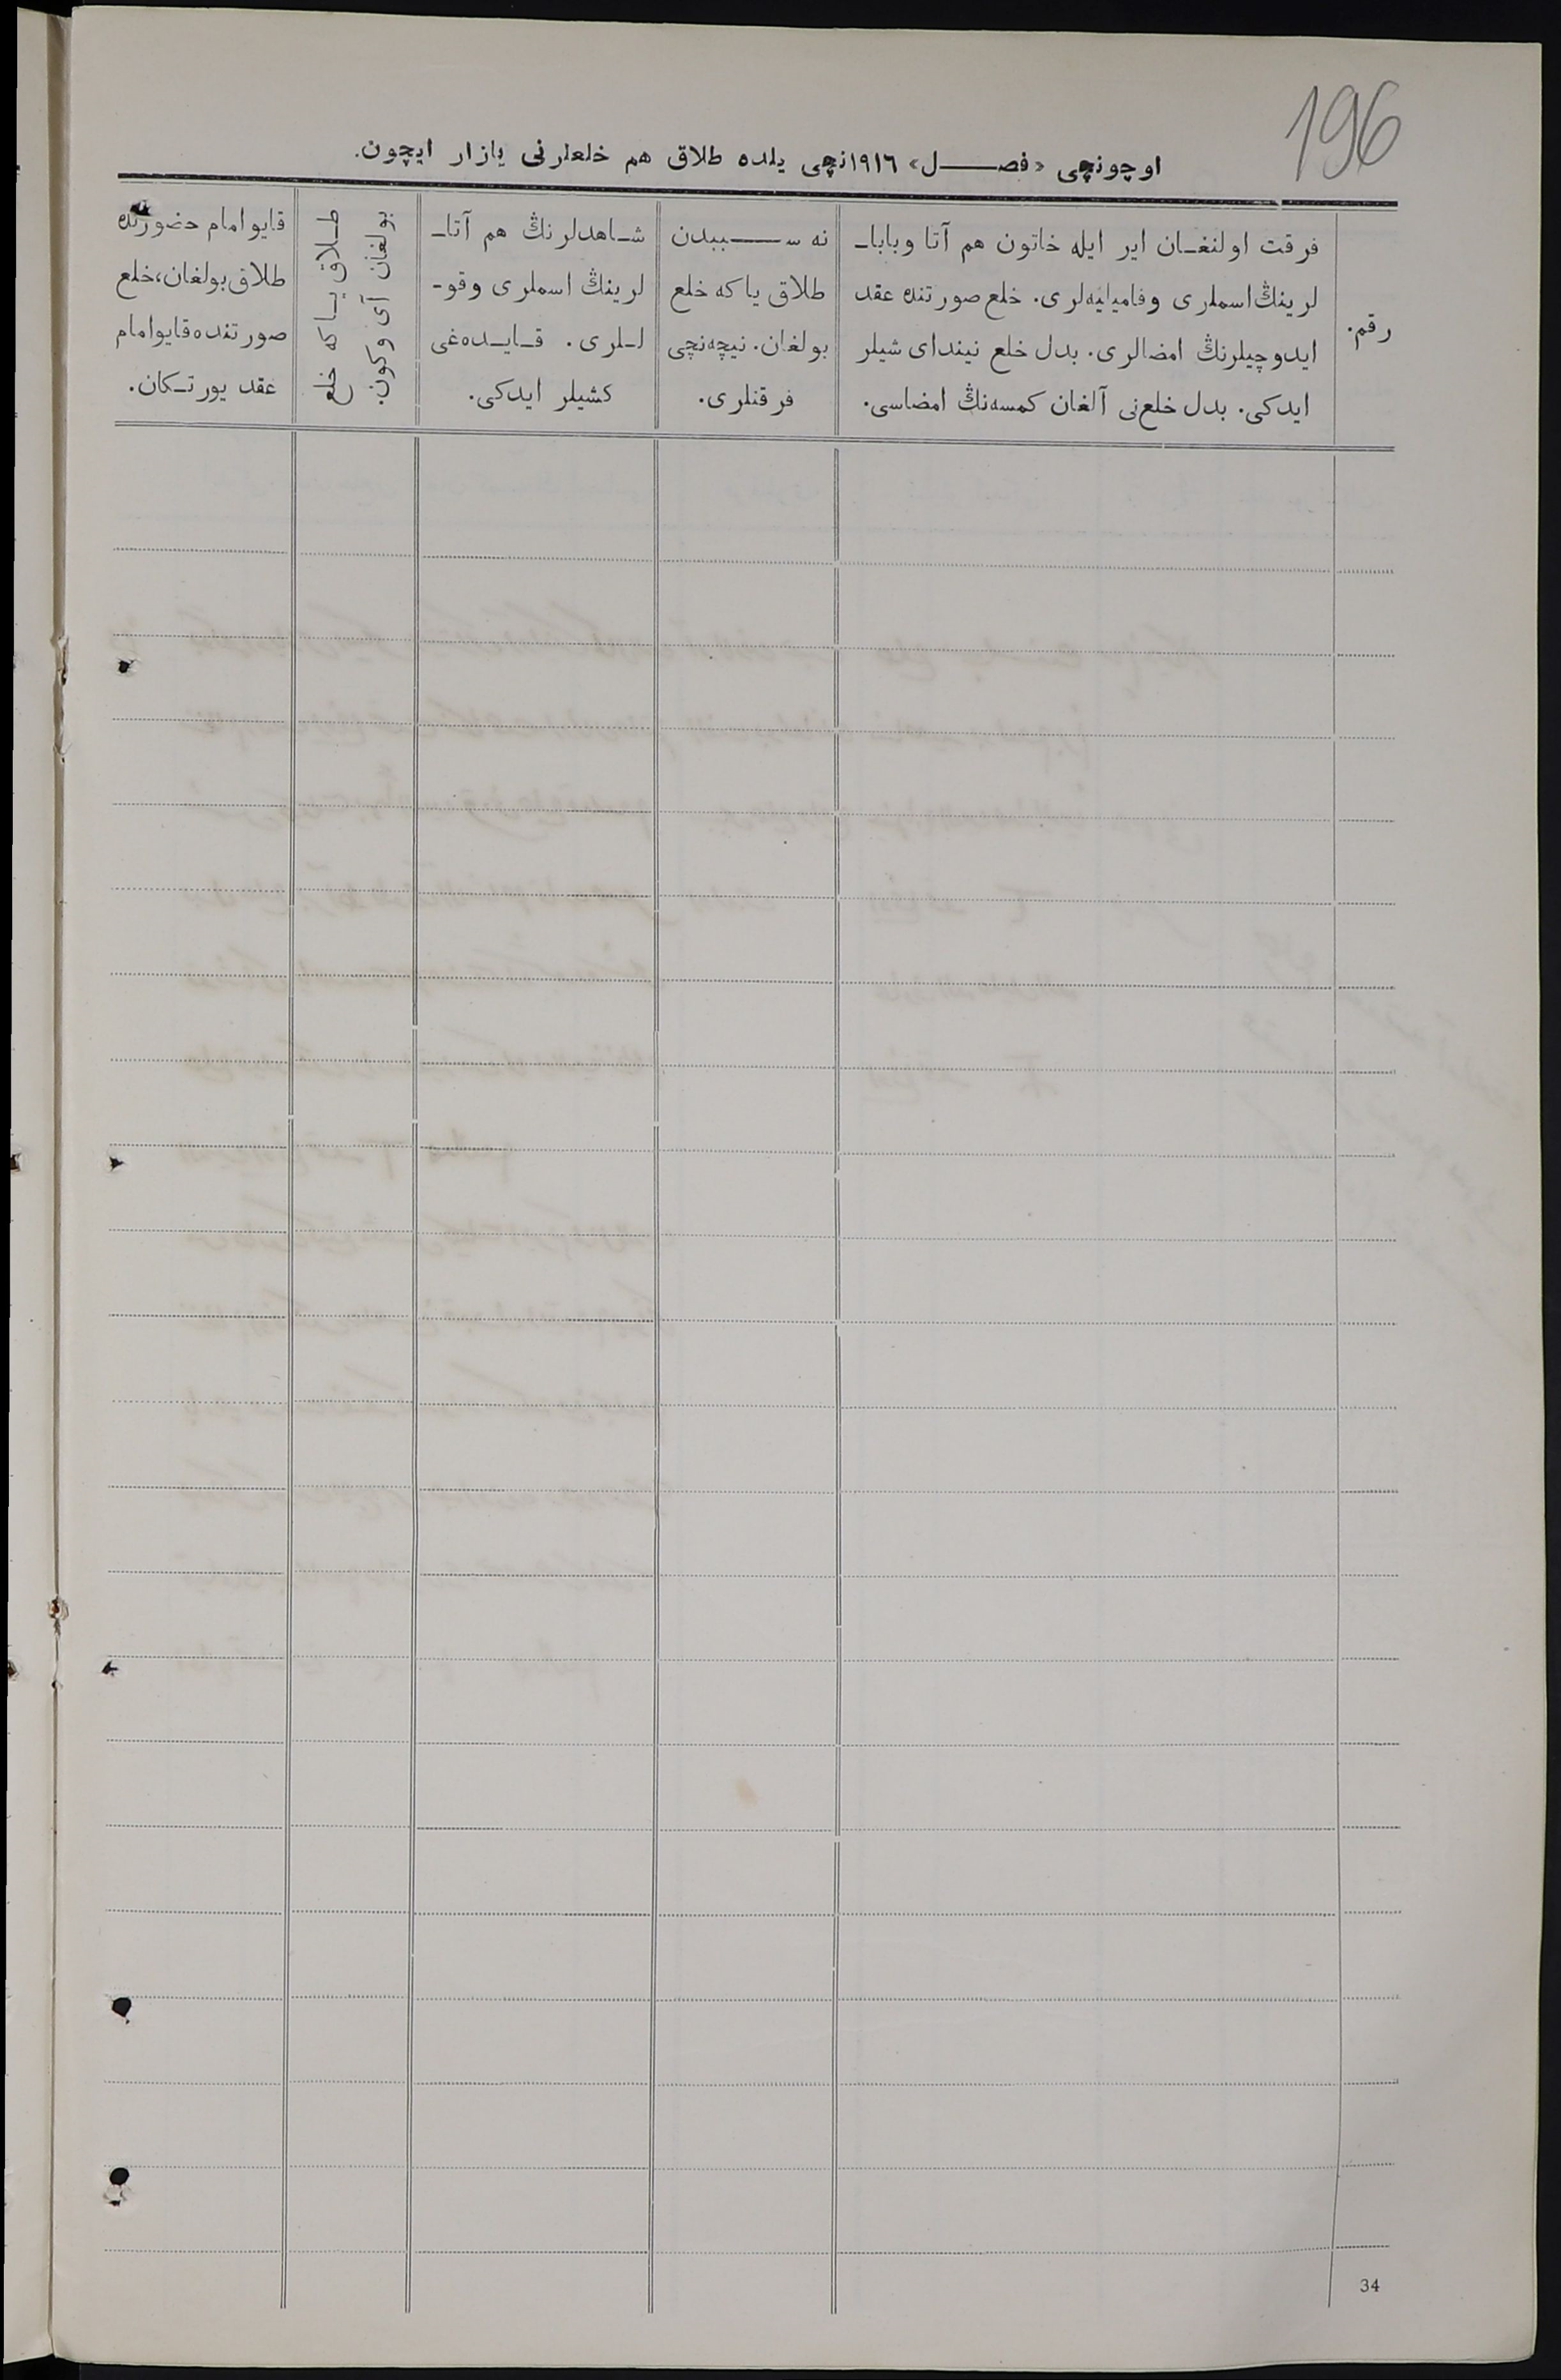 196
اوچونچی «فصـــل» ١٩١٦نچی یلده طلاق هم خلعلرنی یازار ایچون.
رقم.
فرقت اولنغـان ایر ایله خاتون هم آتا وباباـ
لرینڭ اسملری وفامیلیه‌لری. خلع صورتنده عقد
ایدوچیلرنڭ امضالری. بدل خلع نیندای شیلر
ایدکی. بدل خلع‌نی آلغان کمسه‌نڭ امضاسی.
نه ســـببدن
طلاق یاکه خلع
بولغان. نیچه‌نچی
فرقتلری.
شـاهدلرنڭ هم آتاـ
لرینڭ اسملری وقوـ
لـلری. قـایـده‌غی
کشیلر ایدکی.
طـلاق یـاکه خلع
بولغان آی وکون.
قایو امام حضورنده
طلاق بولغان، خلع
صورتنده قایو امام
عقد یورتـکان.
34